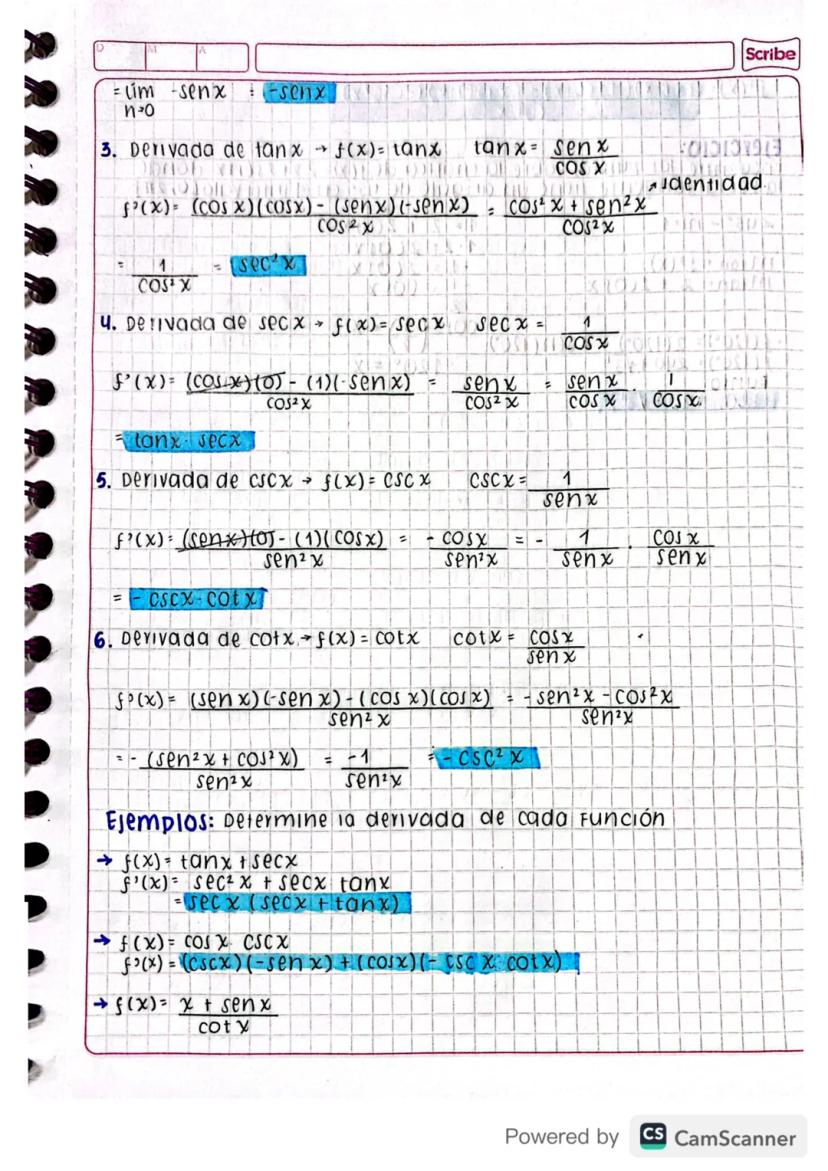 D M A
Scribe
= lím -senx = -senx
n→0
3. Derivada de tanx → f(x)= tanx tanx= senx / cosx
↗ Identidad
f'(x)= (cosx)(cosx) - (senx)(-senx) / cos²x = cos²x + sen²x / cos²x
= 1 / cos²x = sec²x
4. Derivada de secx → f(x)= secx secx = 1 / cosx
f'(x)= (cosx)(0) - (1)(-senx) / cos²x = senx / cos²x = senx / cosx · 1 / cosx
= tanx · secx
5. Derivada de cscx → f(x)= cscx cscx= 1 / senx
f'(x)= (senx)(0) - (1)(cosx) / sen²x = - cosx / sen²x = - 1 / senx · cosx / senx
= - cscx · cotx
6. Derivada de cotx → f(x)= cotx cotx= cosx / senx
f'(x)= (senx)(-senx) - (cosx)(cosx) / sen²x = -sen²x - cos²x / sen²x
= - (sen²x + cos²x) / sen²x = -1 / sen²x = - csc²x
Ejemplos: Determine la derivada de cada función
→ f(x)= tanx + secx
f'(x)= sec²x + secx tanx
= secx (secx + tanx)
→ f(x)= cosx · cscx
f'(x)= (cscx)(-senx) + (cosx)(-cscx·cotx)
→ f(x)= x + senx / cotx
Powered by CS CamScanner